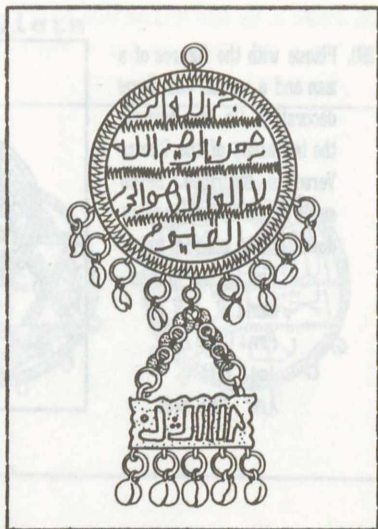 بسم الله الر
حمن الرحيم الله
لا اله الا هو الحي
القيوم